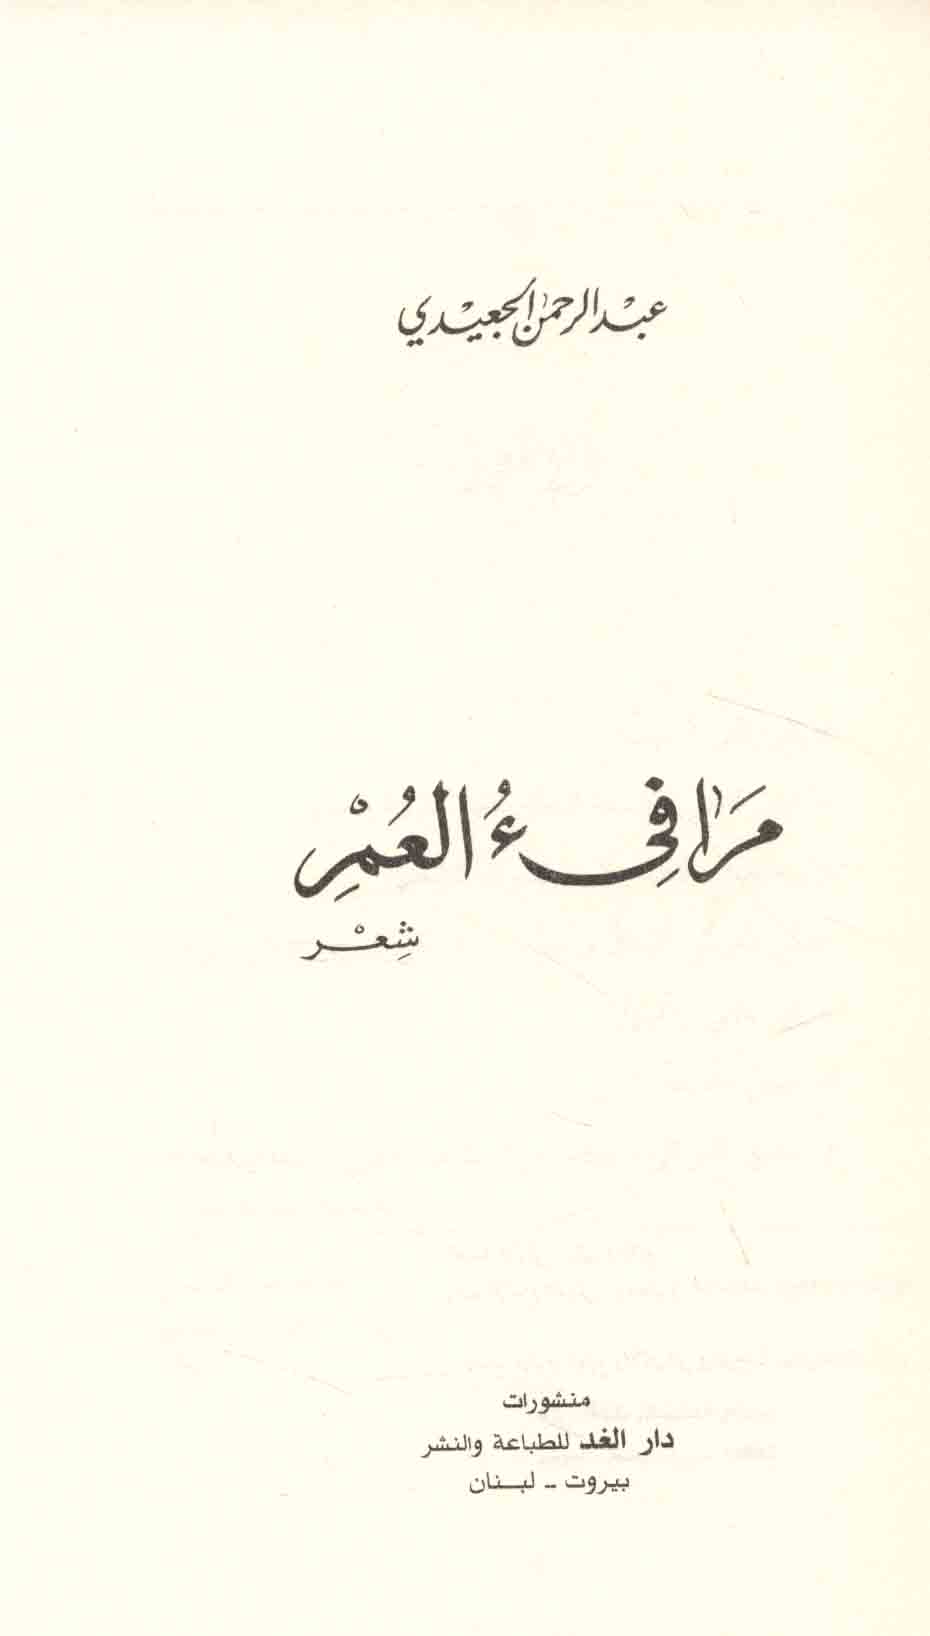 عبد الرحمن الجعيدي
مَرَافِىءُ العُمْرِ
شِعْر
منشورات
دار الغد للطباعة والنشر
بيروت - لبنان